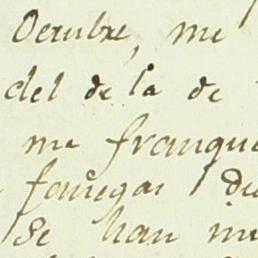 Octubre, me
del de la de
me franque
fanegas du
Se han me